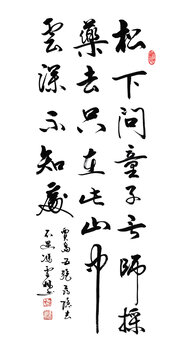 松下问童子言師採
藥去只在此山中
雲深不知處
賈島五絕尋隱者
不遇馮雪